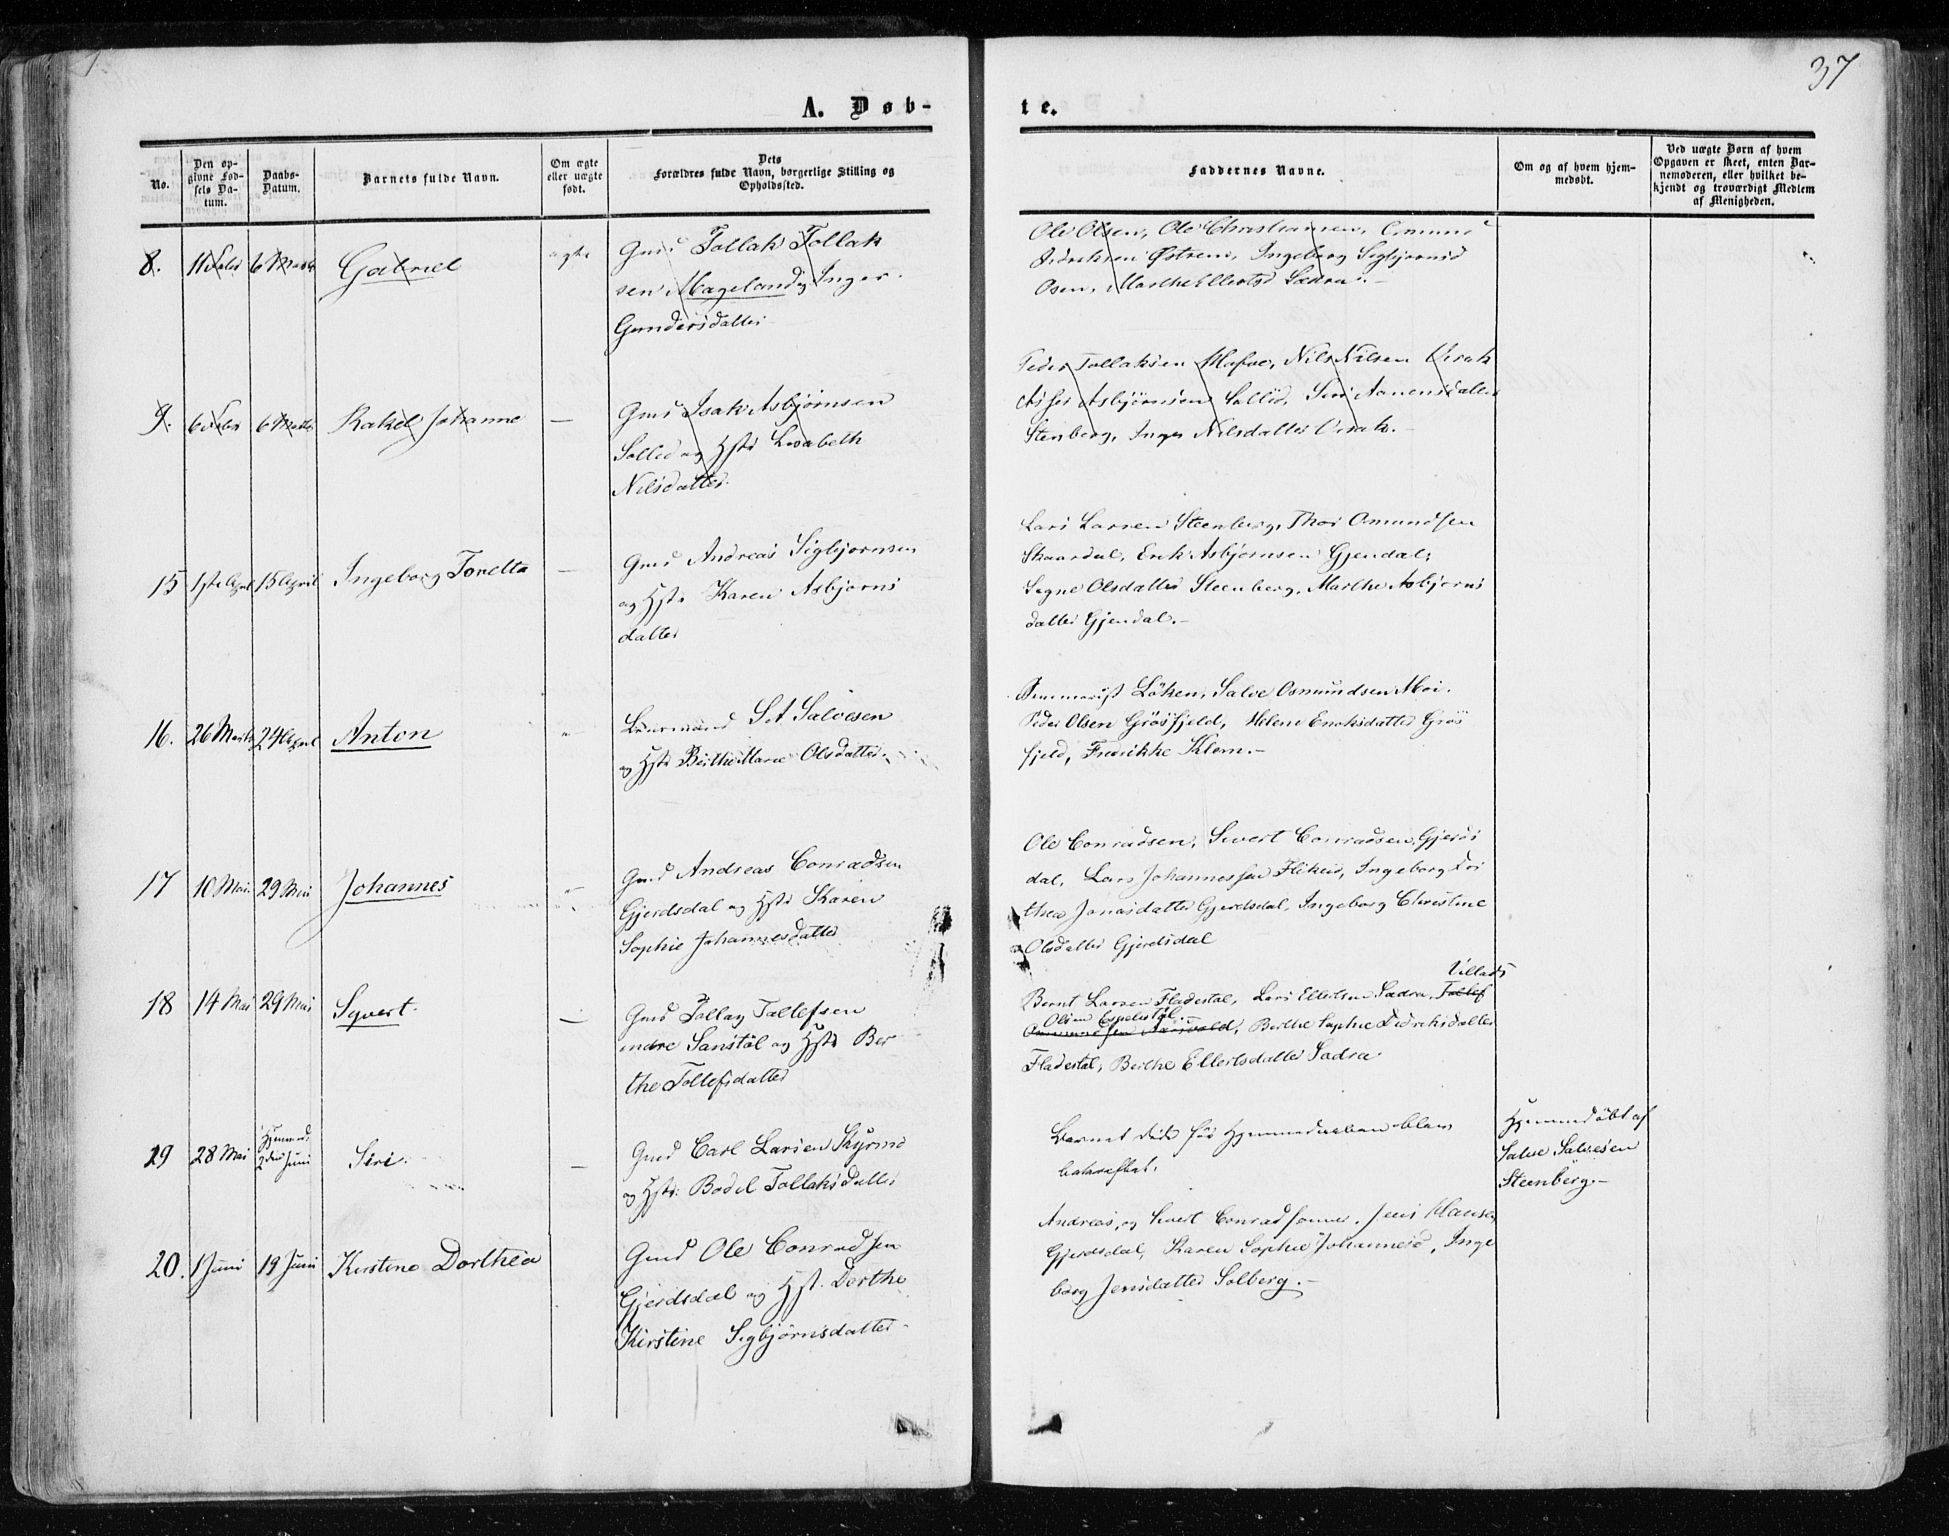 37
A. Døbte.
No.
Den opgivne Fødsels Datum.
Daabs-Datum.
Barnets fulde Navn.
Om ægte eller uægte født.
Dets Forældres fulde Navn, borgerlige Stilling og Opholdssted.
Faddernes Navne.
Om og af hvem hjemmedøbt.
Ved uægte Børn af hvem Opgaven er skeet, enten Barnemoderen, eller hvilket bekjendt og troværdigt Medlem af Menigheden.
8. 11 Febr 6 Marts Gabriel ægte
Gmd Tollak Tollak
sen Mageland og Inger
Gundersdatter
Ole Olsen, Ole Christiansen, Omund
Østrem, Ingeborg Sigbjørnsd
Osen, Marthe Ellertsd Sædra.-
9. 6 Febr 6 Marts Rakel Johanne —
Gmd Isak Asbjørnsen
Sollid og Hstr Lisabeth
Nilsdatter.
Peder Tollaksen, Nils Nilsen
Asbjørnsen Sollid, Siri Aanensdatter
Stenberg, Inger Nilsdatter
15 1ste April 15 April Ingeborg Toretta —
Gmd Andreas Sigbjørnsen
og Hstr Karen Asbjørns
datter
Lars Larsen Steenberg, Thor Omundsen
Skaardal, Erik Asbjørnsen Gjendal,
Signe Olsdatter Steenberg, Marthe Asbjørns
datter Gjendal.-
16. 26 Marts 24 April Anton "
S A Salvesen
og Hstr Berthe Marie Olsdatter
Løken, Salve Osmundsen Moi.
Peder Olsen Grøsfjeld, Helene Eriksdatter Grøs
fjeld, Fredrikke Klem.-
17 10 Mai 29 Mai Johannes "
Gmd Andreas Conradsen
Gjerdsdal og Hstr Karen
Sophie Johannesdatter
Ole Conradsen, Sivert Conradsen Gjerds
dal, Lars Johannessen Flikeid, Ingeborg Dor
thea Jonasdatter Gjerdsdal, Ingeborg Christine
Olsdatter Gjerdsdal
18 14 Mai 29 Mai Syvert. —
Gmd Tollag Tallefsen
indre Sanstøl og Hstr Ber
the Tollefsdatter
Villads
Bernt Larsen Fladestøl, Lars Ellertsen Sædra, Tollef
Olsen Espelistøl,
Berthe Sophie Didriksdatter
Fladestøl, Berthe Ellertsdatter Sædra.
19 28 Mai Hjemmed. 2den Juni Siri. —
Gmd Carl Larsen Skjerme
og Hstr. Bodil Tollaksdatter
Barnet døde før Hjemmedaaben blev
bekræftet.
Hjemmedøbt af
Salve Salvesen
Steenberg.-
20. 1 Juni 19 Juni Kirstine Dorthea
Gmd Ole Conradsen
Gjerdsdal og Hst. Dorthe
Kirstine Sigbjørnsdatter
Andreas, og Sivert Conradsønner, Jens Hansen
Gjerdsdal, Karen Sophie Johannesd, Inge
borg Jensdatter Solberg.-